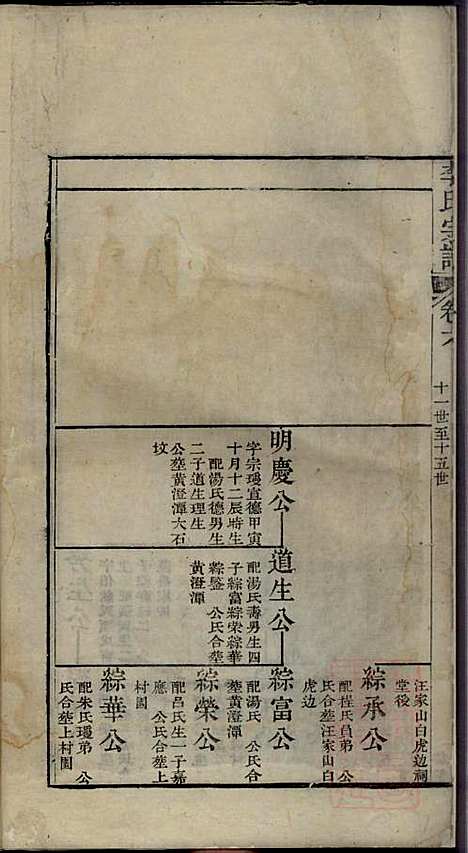 李氏宗譜
卷六
十一世至十五世
明慶公
字宗瓊宣德甲寅
十月十二辰時生
配湯氏德男生
二子道生理生
公塟黃澄潭大石
坟
道生公
配湯氏壽男生四
子綜富綜榮綜華
綜鑒 公氏合塟
黃澄潭
汪家山白虎边祠
堂後
綜承公
配程氏員弟 公
氏合塟汪家山白
虎边
綜富公
配湯氏 公氏合
塟黃澄潭
綜榮公
配呂氏生一子嘉
應 公氏合塟上
村園
綜華公
配朱氏瓊弟 公
氏合塟上村園